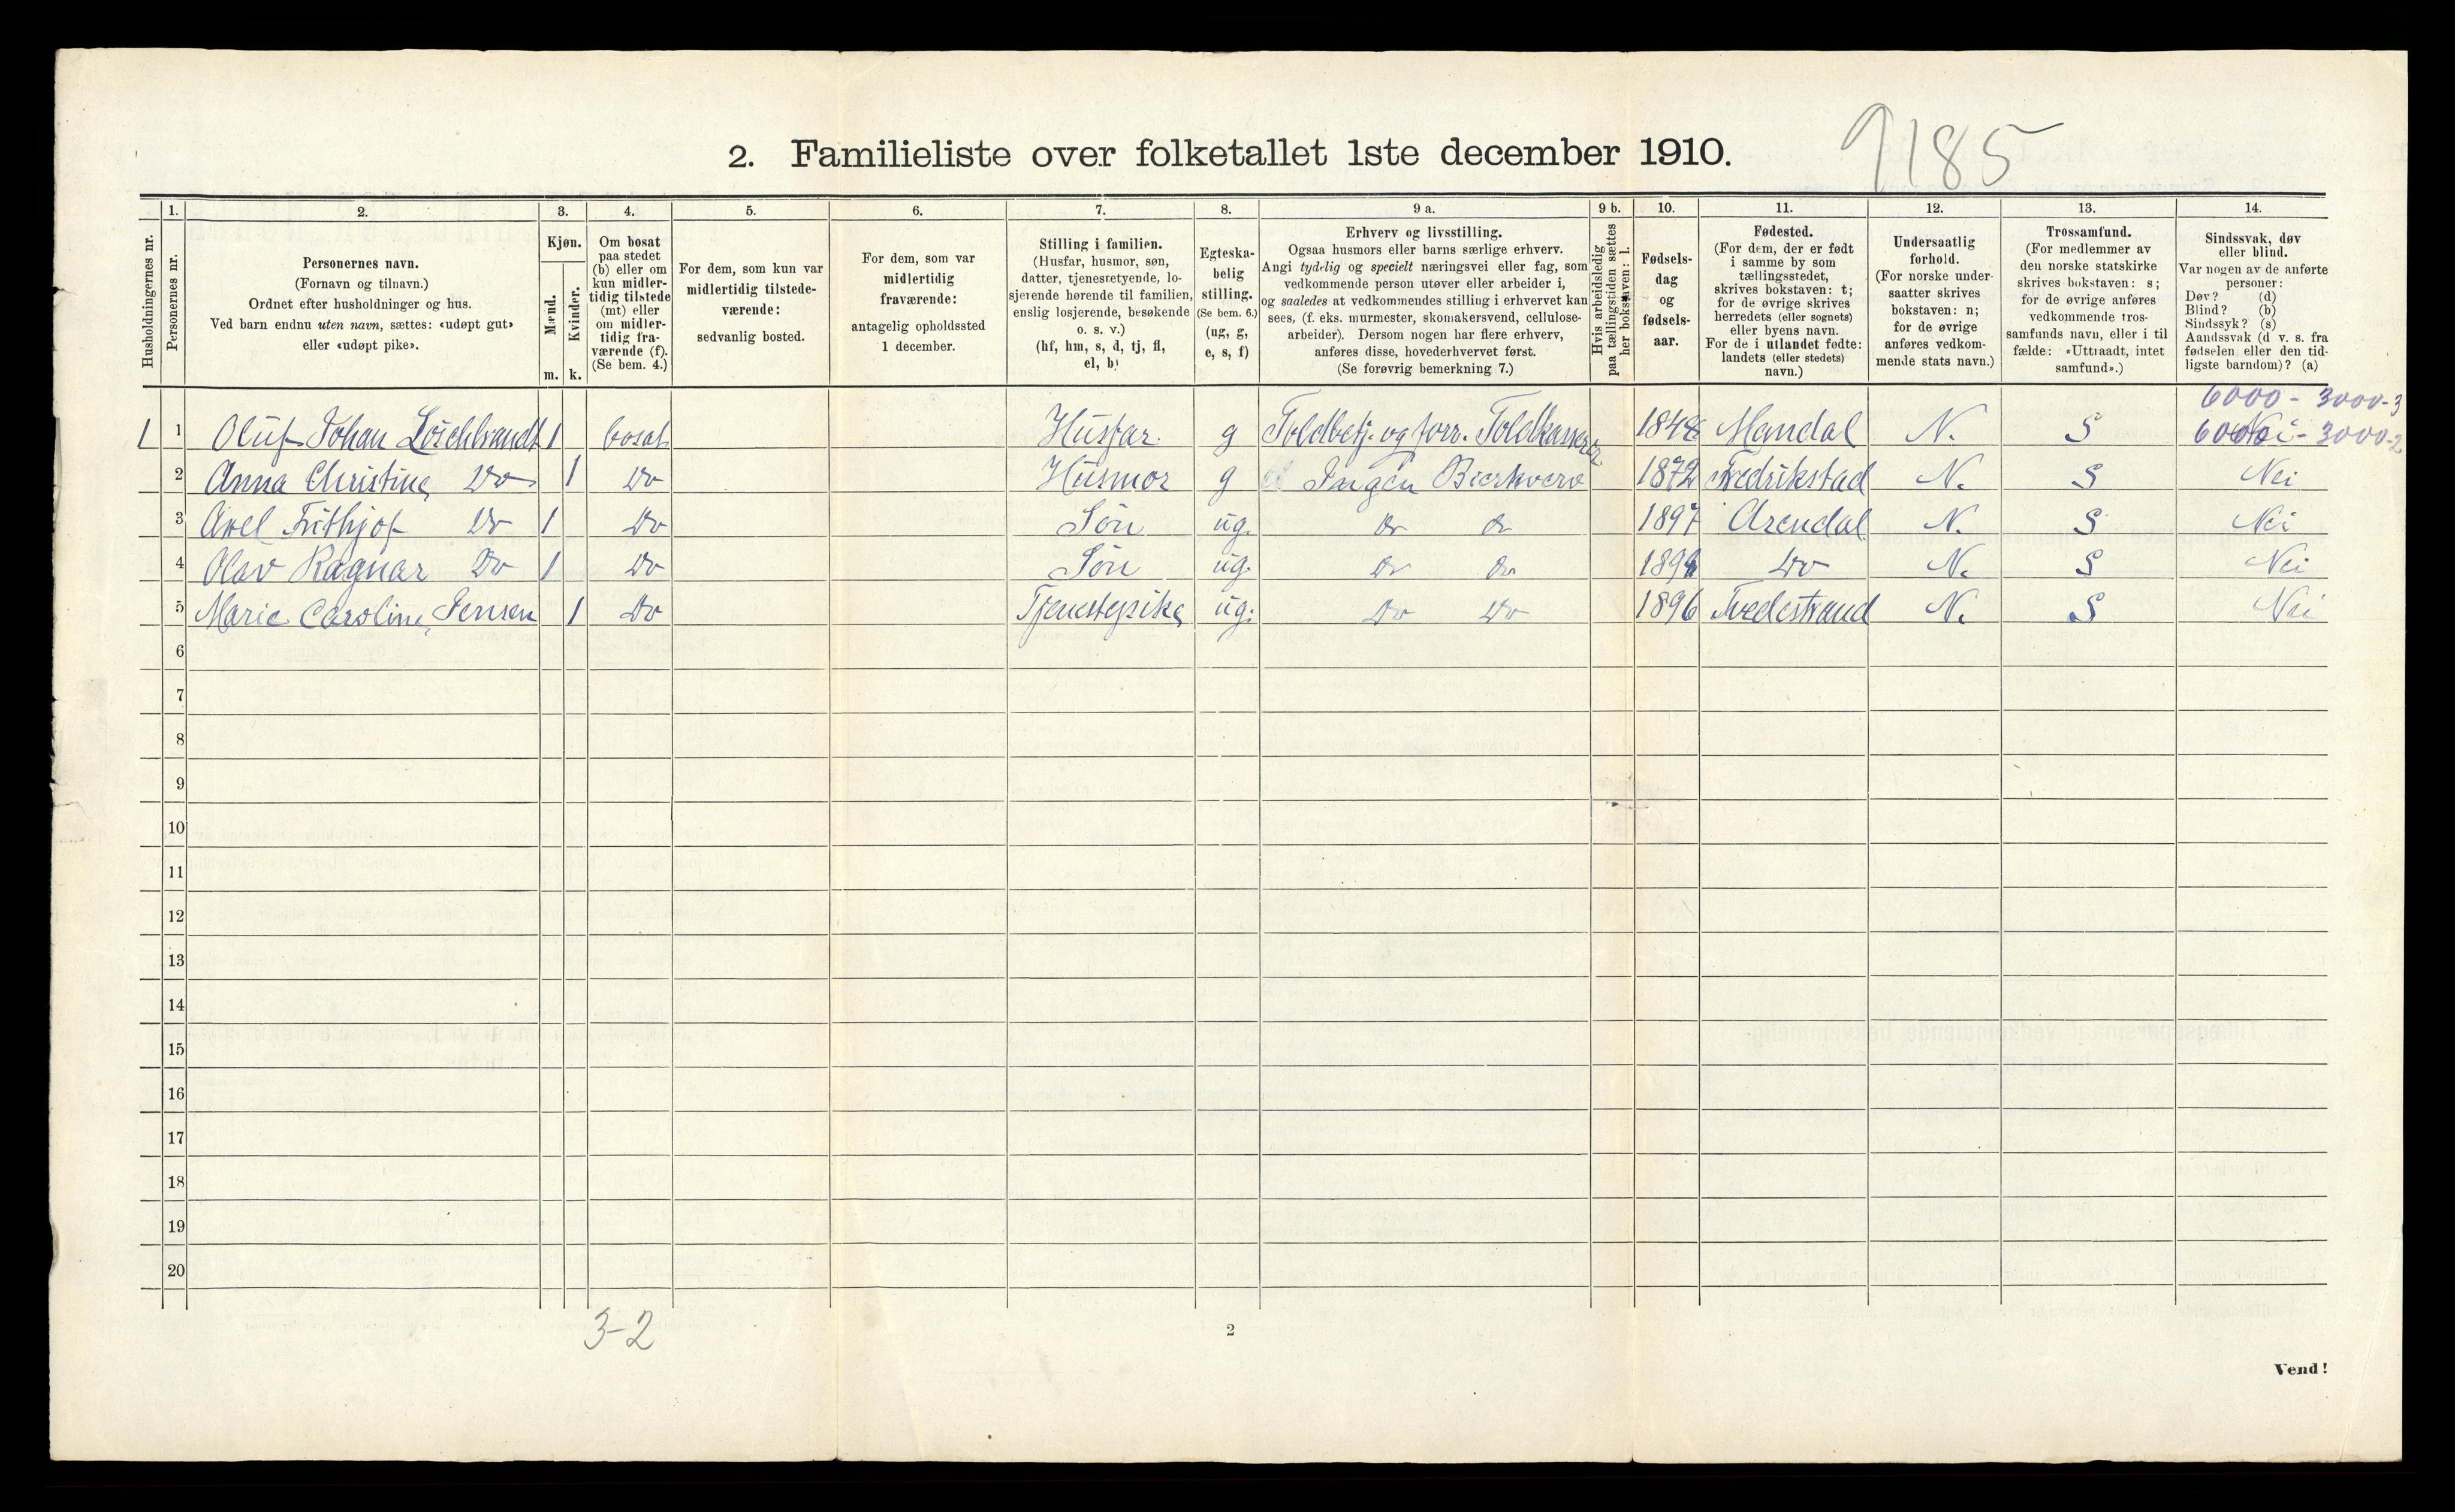 2. Familieliste over folketallet 1ste december 1910.
9185
Husholdningernes nr.
1.
Personernes nr.
2.
Personernes navn.
(Fornavn og tilnavn.)
Ordnet efter husholdninger og hus.
Ved barn endnu uten navn, sættes: «udøpt gut»
eller «udøpt pike».
3.
Kjøn.
Mænd.
Kvinder.
m. k.
4.
Om bosat
paa stedet
(b) eller om
kun midler-
tidig tilstede
(mt) eller
om midler-
tidig fra-
værende (f).
(Se bem. 4.)
5.
For dem, som kun var
midlertidig tilstede-
værende:
sedvanlig bosted.
6.
For dem, som var
midlertidig
fraværende:
antagelig opholdssted
1 december.
7.
Stilling i familien.
(Husfar, husmor, søn,
datter, tjenestetyende, lo-
sjerende hørende til familien,
enslig losjerende, besøkende
o. s. v.)
(hf, hm, s, d, tj, fl,
el, b)
8.
Egteska-
belig
stilling.
(Se bem. 6.)
(ug, g,
e, s, f)
9 a.
Erhverv og livsstilling.
Ogsaa husmors eller barns særlige erhverv.
Angi tydelig og specielt næringsvei eller fag, som
vedkommende person utøver eller arbeider i,
og saaledes at vedkommendes stilling i erhvervet kan
sees, (f. eks. murmester, skomakersvend, cellulose-
arbeider). Dersom nogen har flere erhverv,
anføres disse, hovederhvervet først.
(Se forøvrig bemerkning 7.)
9 b.
Hvis arbeidsledig
paa tællingstiden sættes
her bokstaven: l.
10.
Fødsels-
dag
og
fødsels-
aar.
11.
Fødested.
(For dem, der er født
i samme by som
tællingsstedet,
skrives bokstaven: t;
for de øvrige skrives
herredets (eller sognets)
eller byens navn.
For de i utlandet fødte:
landets (eller stedets)
navn.)
12.
Undersaatlig
forhold.
(For norske under-
saatter skrives
bokstaven: n;
for de øvrige
anføres vedkom-
mende stats navn.)
13.
Trossamfund.
(For medlemmer av
den norske statskirke
skrives bokstaven: s;
for de øvrige anføres
vedkommende tros-
samfunds navn, eller i til
fælde: «Uttraadt, intet
samfund».)
14.
Sindssvak, døv
eller blind.
Var nogen av de anførte
personer:
Døv? (d)
Blind? (b)
Sindssyk? (s)
Aandssvak (d v. s. fra
fødselen eller den tid-
ligste barndom)? (a)
6000 - 3000-3
1 1 Oluf Johan Löschbrandt 1 bosat Husfar. g Toldbetj. og forr. Toldkasserer 1848 Mandal N. S Nei 6000 - 3000-2
2 Anna Christine Do 1 Do Husmor g Ingen Bierhverv 1872 Fredrikstad N. S Nei
3 Axel Frithjof Do 1 Do Søn ug. do do 1897 Arendal N. S Nei
4 Olav Ragnar Do 1 Do Søn ug. do do Do N. S Nei
5 Marie Caroline Jensen 1 Do Tjenestepike ug. Do Do 1896 Tvedestrand N. S Nei
6
7
8
9
10
11
12
13
14
15
16
17
18
19
20
3-2
2
Vend!